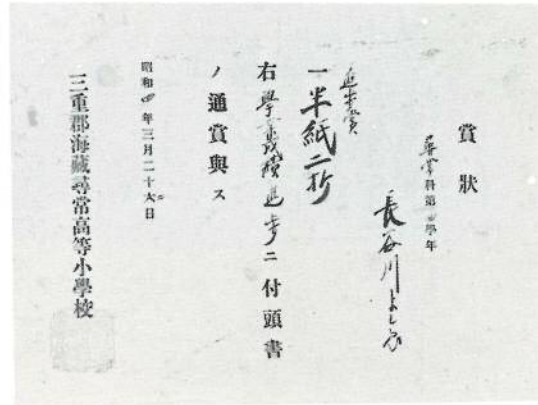 賞狀
尋常科第四學年
長谷川よしゑ
進步賞
一半紙二折
右學業成績進步ニ付頭書
ノ通賞與ス
昭和四年三月二十六日
三重郡海藏尋常高等小學校